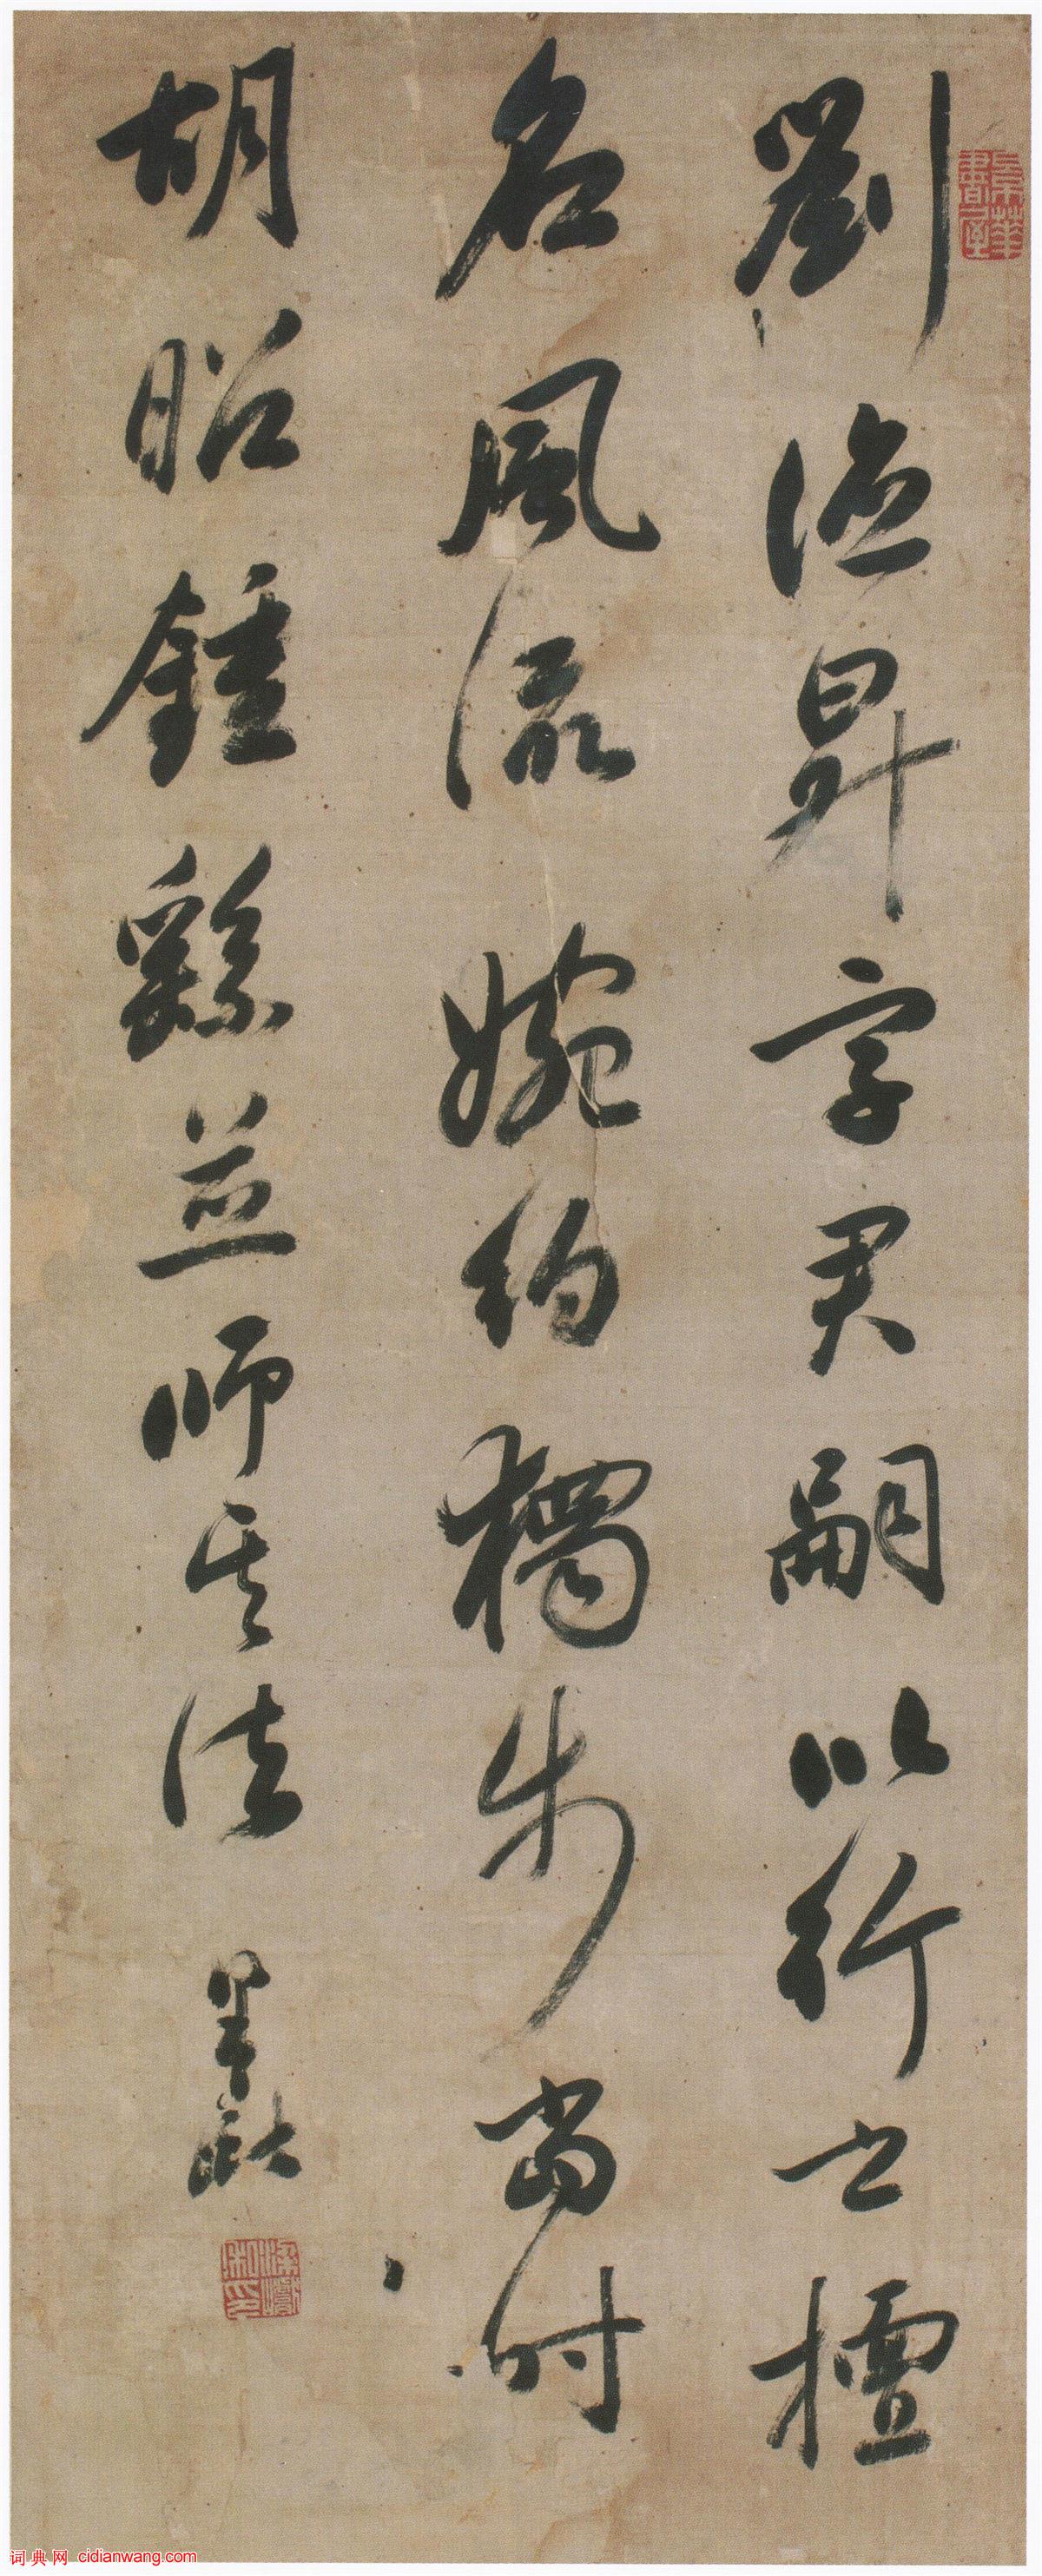 劉德昇字君嗣以行書擅
名風流婉約獨步當時
胡昭鍾繇並師其法
詞典网 cidianwang.com